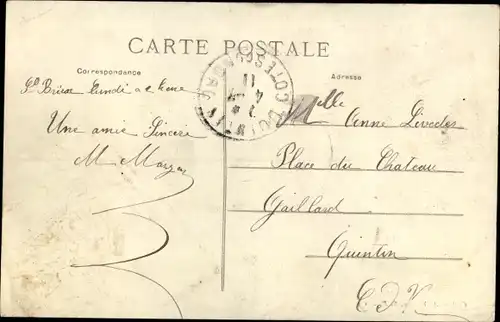 CARTE POSTALE
Correspondance
St Brieuc Lundi
Une amie Sincère
M
Adresse
Melle Anne
Place du Chateau
Gaillard
Quintin
C. d. N.
QUINTIN
COTES DU NORD